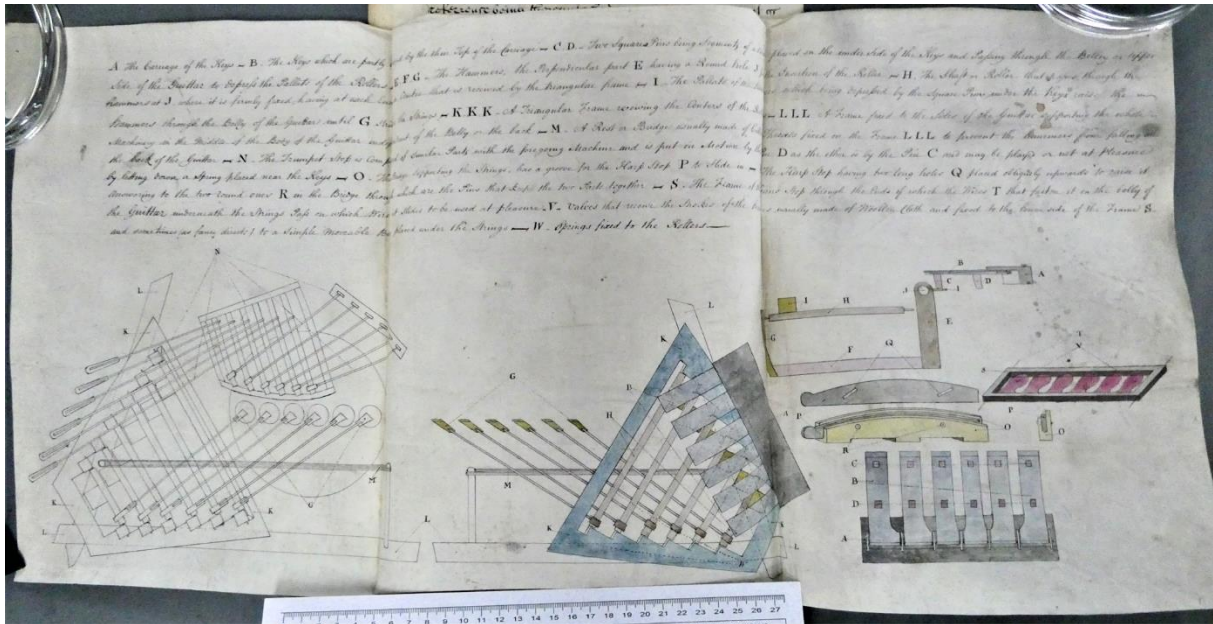 reference being thereunto
A The Carriage of the Keys — B. The Keys which are partly by the thin Top of the Carriage — C D. Two Square Pins being placed on the under Side of the Keys and Passing through the Belly or upper
Side of the Guittar to depress the Pallets of the Rollers E F G The Hammers, the Perpendicular part E having a Round hole the Junction of the Roller — H. The Shaft or Roller that goes through the
hammers at J where it is firmly fixed, having at each Center that is received by the triangular frame — I. The Pallets which being depressed by the Square Pins under the Keys raise the
Hammers through the Belly of the Guittar until G the Strings — K K K. A Triangular Frame receiving the Centers of the — L L L A Frame fixed to the Sides of the Guittar supporting the whole
Machinery in the Middle of the Body of the Guittar of the Belly or the back — M. A Rest or Bridge usually made of fixed on the Frame L L L to prevent the Hammers from falling on
the back of the Guittar — N. The Trumpet Stop is of Similar Parts with the foregoing Machine and is put in Motion by the D as the other is by the Pin C and may be played or not at pleasure
by letting down a Spring placed near the Keys — O. supporting the Strings, has a groove for the Harp Stop P to Slide in — The Harp Stop having two long holes Q placed obliquely upwards to raise it
according to the two round ones R in the Bridge through which are the Pins that keep the two Parts together — S. The Frame Stop through the Ends of which the Wires T that fasten it on the belly of
the Guittar underneath the Strings Pass on which Wires it Slides to be used at pleasure V. Valves that receive the Strokes of the usually made of Woollen Cloth and fixed to the lower side of the Frame S.
and sometimes (as fancy directs) to a Simple Moveable under the Strings — W. Springs fixed to the Rollers —
N
L
K
K
K
L
L
G
M
L
K
B
H
G
M
K
L
L
B
A
C
D
I
H
J
E
G
F
Q
T
V
S
P
P
O
O
R
C
B
D
A
4 5 6 7 8 9 10 11 12 13 14 15 16 17 18 19 20 21 22 23 24 25 26 27